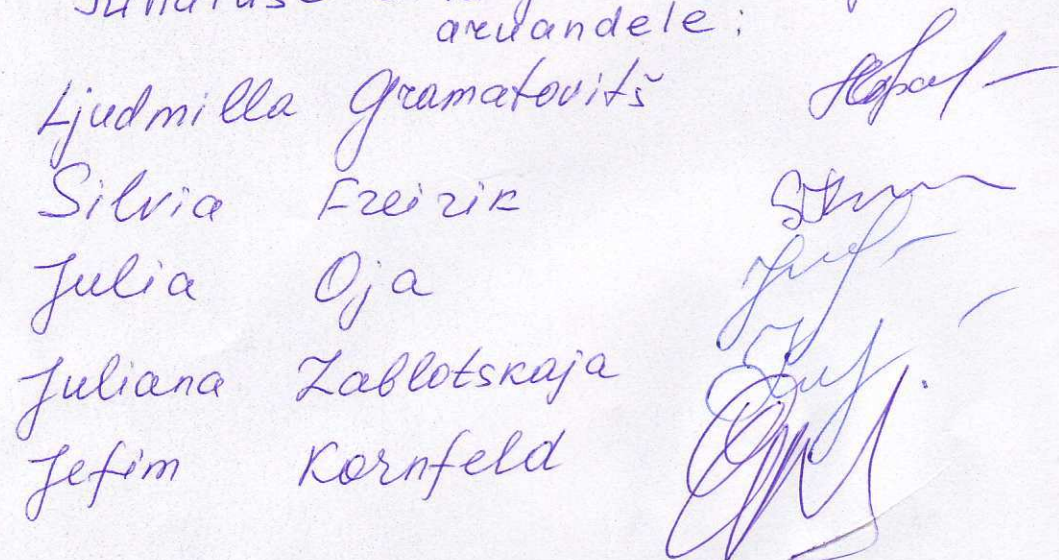 arvandele:
Ljudmilla Gramatovitš
Silvia Freirik
Julia Oja
Juliana Zablotskaja
Jefim Kornfeld